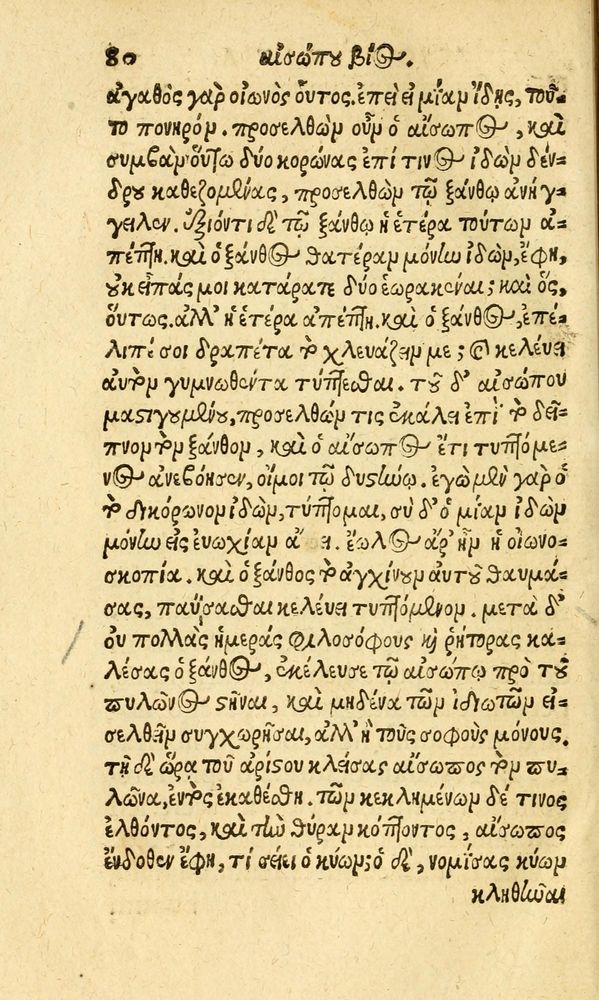 80 αἰσώπου βίος.
ἀγαθὸς γὰρ οἰωνὸς οὗτος. ἐπεὶ εἰ μίαν ἴδης, τοῦ-
το πονηρόν. προσελθὼν οὖν ὁ αἴσωπος, καὶ
συμβὰν οὕτω δύο κορώνας ἐπί τινος ἰδὼν δέν-
δρου καθεζομένας, προσελθὼν τῷ ξάνθῳ ἀνήγ-
γειλεν. ἐξιόντι δὲ τῷ ξάνθῳ ἡ ἑτέρα τούτων ἀ-
πέπτη. καὶ ὁ ξάνθος θατέραν μόνην ἰδὼν, ἔφη,
οὐκ εἶπάς μοι κατάρατε δύο ἑωρακέναι; καὶ ὅς,
οὕτως. ἀλλ' ἡ ἑτέρα ἀπέπτη. καὶ ὁ ξάνθος, ἐπέ-
λιπέ σοι δραπέτα τὸ χλευάζειν με; καὶ κελεύει
αὐτὸν γυμνωθέντα τύπτεσθαι. τοῦ δ' αἰσώπου
μαστιγουμένου, προσελθών τις ἐκάλει ἐπὶ τὸ δεῖ-
πνον τὸν ξάνθον, καὶ ὁ αἴσωπος ἔτι τυπτόμε-
νος ἀνεβόησεν, οἴμοι τῷ δυστήνῳ. ἐγὼ μὲν γὰρ ὁ
τὸ δικόρωνον ἰδὼν, τύπτομαι, σὺ δ' ὁ μίαν ἰδὼν
μόνην εἰς εὐωχίαν ἄ ει. ἕωλος ἄρ' ἦν ἡ οἰωνο-
σκοπία. καὶ ὁ ξάνθος τὸ ἀγχίνουν αὐτοῦ θαυμά-
σας, παύσασθαι κελεύει τυπτόμενον. μετὰ δ'
οὐ πολλὰς ἡμέρας φιλοσόφους καὶ ῥήτορας κα-
λέσας ὁ ξάνθος, ἐκέλευσε τῷ αἰσώπῳ πρὸ τοῦ
πυλῶνος στῆναι, καὶ μηδένα τῶν ἰδιωτῶν εἰ-
σελθεῖν συγχωρῆσαι, ἀλλ' ἢ τοὺς σοφοὺς μόνους.
τῇ δ' ὥρᾳ τοῦ ἀρίστου κλείσας αἴσωπος τὸν πυ-
λῶνα, ἐντὸς ἐκαθέσθη. τῶν κεκλημένων δέ τινος
ἐλθόντος, καὶ τὴν θύραν κόπτοντος, αἴσωπος
ἔνδοθεν ἔφη, τί σείει ὁ κύων; ὁ δὲ, νομίσας κύων
κληθῆναι